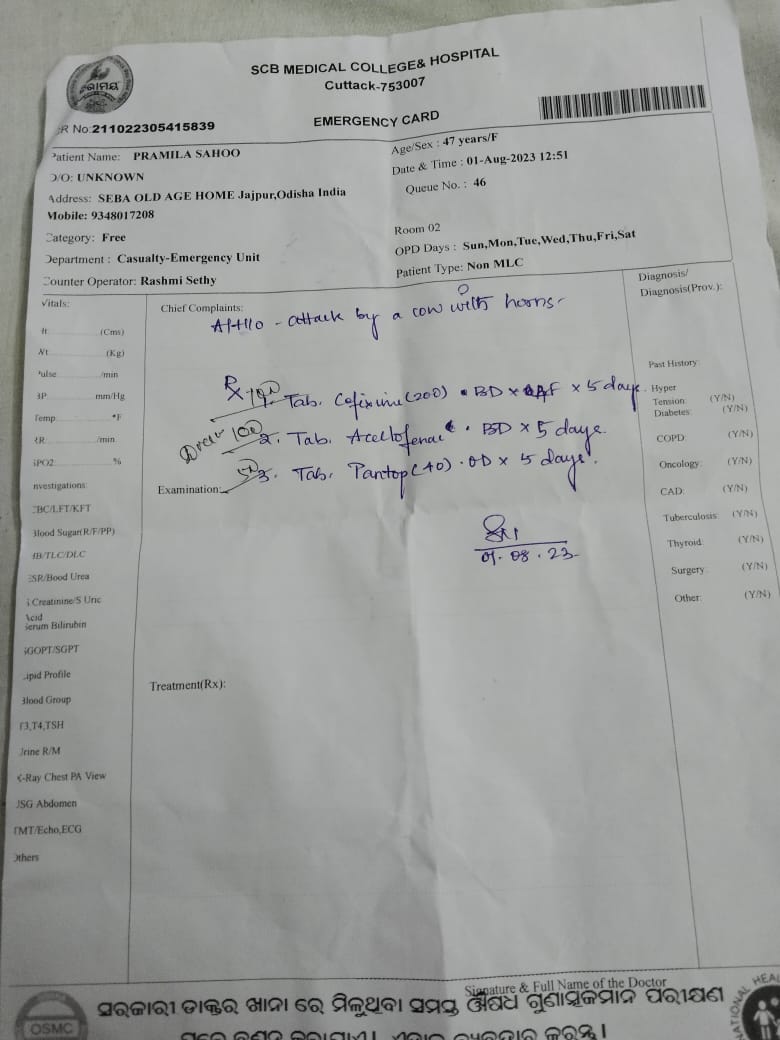 ରାମୟ
SCB MEDICAL COLLEGE& HOSPITAL
Cuttack-753007
R No:211022305415839
EMERGENCY CARD
Patient Name: PRAMILA SAHOO
Age/Sex : 47 years/F
D/O: UNKNOWN
Date & Time : 01-Aug-2023 12:51
Address: SEBA OLD AGE HOME Jajpur,Odisha India
Queue No. : 46
Mobile: 9348017208
Category: Free
Room 02
Department : Casualty-Emergency Unit
OPD Days : Sun,Mon,Tue,Wed,Thu,Fri,Sat
Counter Operator: Rashmi Sethy
Patient Type: Non MLC
Vitals:
Ht (Cms)
Wt (Kg)
Pulse /min
BP mm/Hg
Temp °F
RR /min
SPO2 %
Investigations:
CBC/LFT/KFT
Blood Sugar(R/F/PP)
HB/TLC/DLC
ESR/Bood Urea
S Creatinine/S Uric
Acid
Serum Bilirubin
SGOPT/SGPT
Lipid Profile
Blood Group
T3,T4,TSH
Urine R/M
X-Ray Chest PA View
USG Abdomen
TMT/Echo,ECG
Others
Chief Complaints:
- attack by a cow with horns-
Rx
1. Tab. Cefixime (200) • BD × 5 days.
2. Tab. Aceclofenac • BD × 5 days.
3. Tab. Pantop (40) • OD × 5 days.
Examination:
01.08.23
Treatment(Rx):
Diagnosis/
Diagnosis(Prov.):
Past History:
Hyper
Tension: (Y/N)
Diabetes: (Y/N)
COPD: (Y/N)
Oncology: (Y/N)
CAD: (Y/N)
Tuberculosis: (Y/N)
Thyroid: (Y/N)
Surgery: (Y/N)
Other: (Y/N)
Signature & Full Name of the Doctor
ସରକାରୀ ଡାକ୍ତର ଖାନା ରେ ମିଳୁଥିବା ସମସ୍ତ ଔଷଧ ଗୁଣାତ୍ମକମାନ ପରୀକ୍ଷଣ
OSMC
NATIONAL HEA